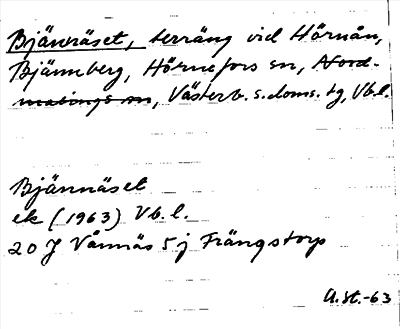 Bjännäset, terräng vid Hörnån,
Bjännberg, Hörnefors sn, Nord-
malings sn, Västerb. s. doms. tg, Vb.l.
Bjännäset
ek (1963) Vb.l.
20 J Vännäs 5 j Frängstorp
A.St.-63